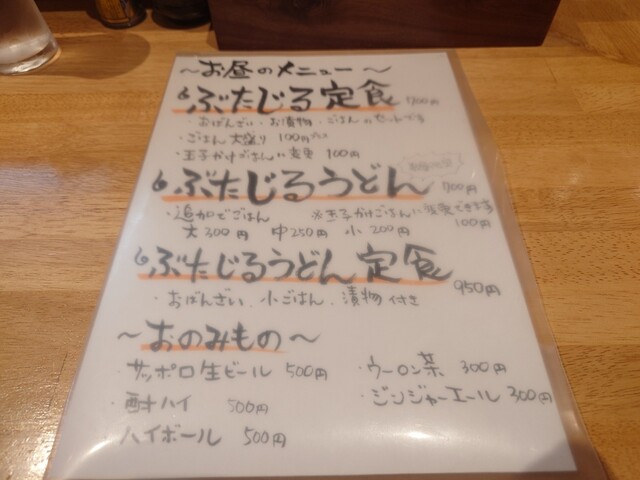 ～お昼のメニュー～
ぶたじる定食 700円
・おばんざい・お漬物・ごはんのセットです
・ごはん大盛り 100円プラス
・玉子かけごはんに変更 100円
ぶたじるうどん 700円
・追加でごはん ※玉子かけごはんに変更できます
大300円 中250円 小200円 100円
ぶたじるうどん定食 950円
・おばんざい、小ごはん、漬物付き
～おのみもの～
・サッポロ生ビール 500円 ・ウーロン茶 300円
・酎ハイ 500円 ・ジンジャーエール 300円
・ハイボール 500円